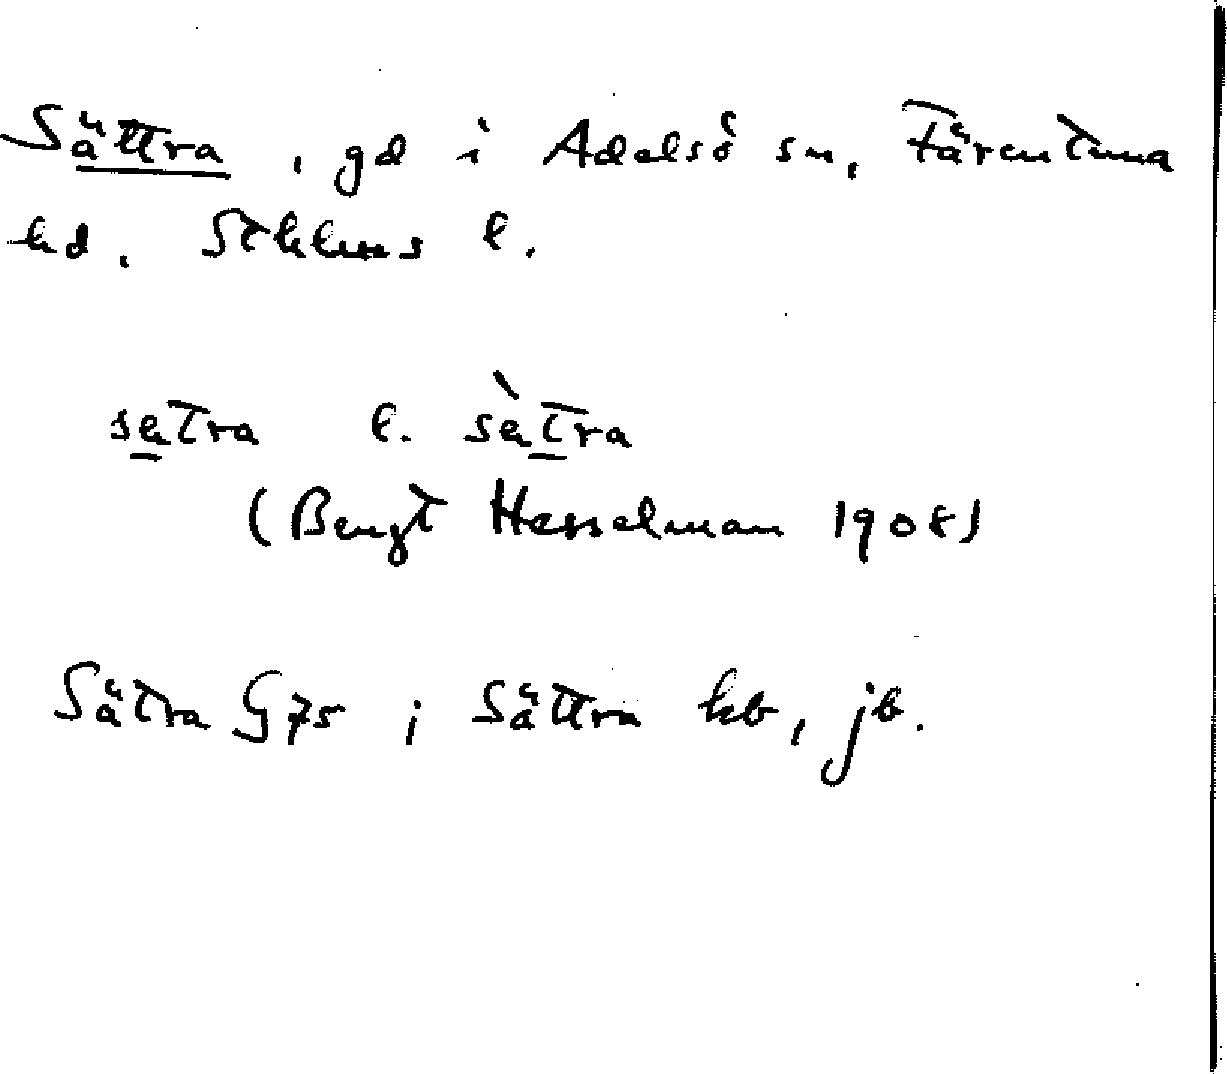 Sättra, gd i Adelsö sn, Färentuna
hd. Sthlms l.
sätra l. sä̀tra
(Bengt Hesselman 1908)
Sätra G 75 ; Sättra kb, jb.